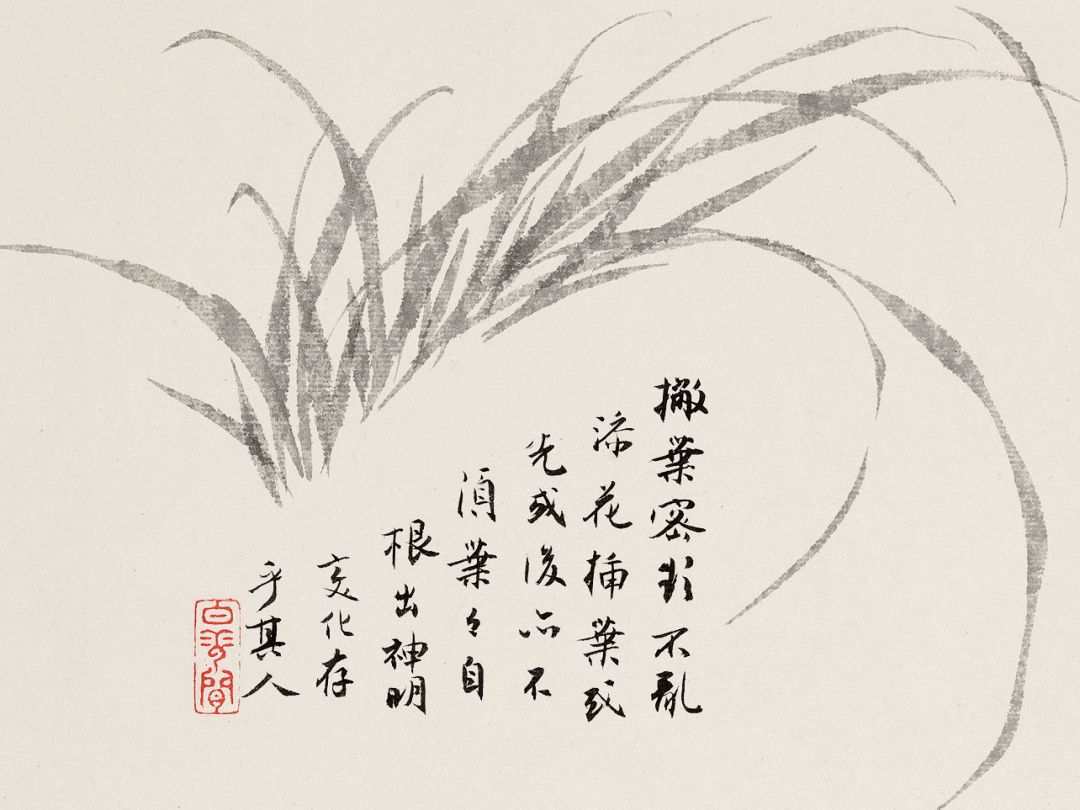 撇葉密不亂
添花插葉或
先或後亦不
須葉々自
根出神明
变化存
乎其人
白云間